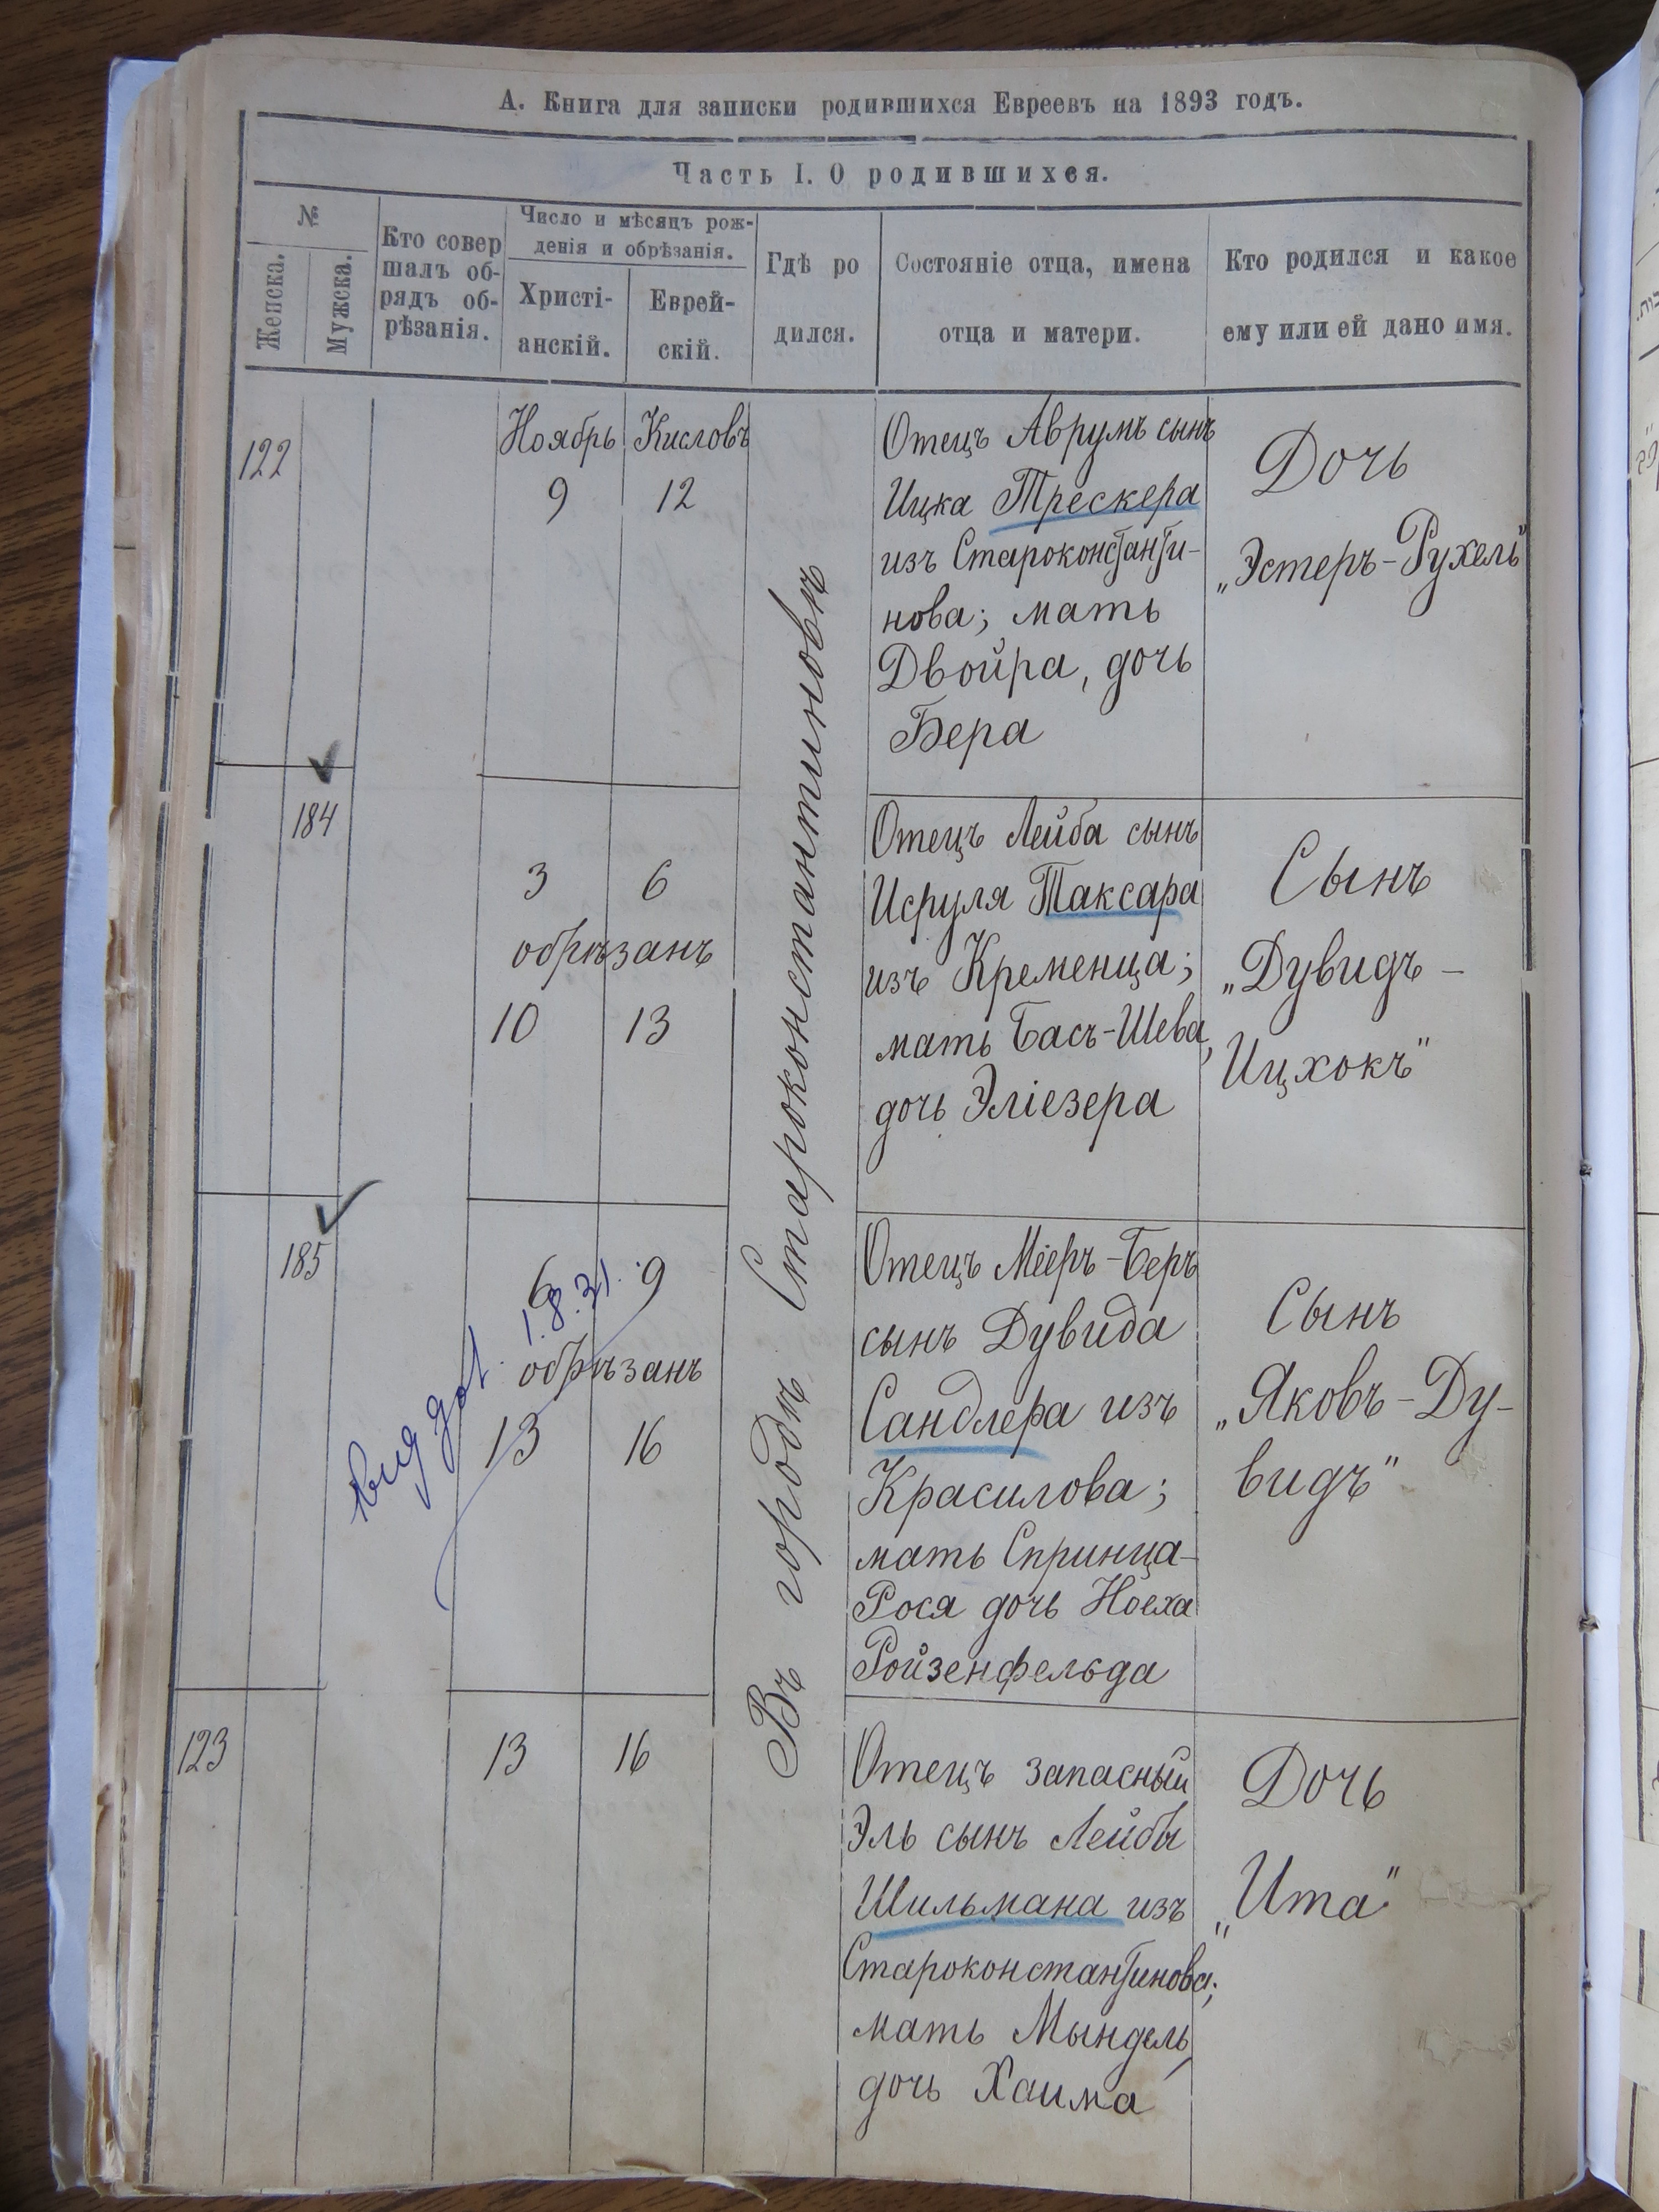 А. Книга для записки родившихся Евреевъ на 1893 годъ.
Часть I. О родившихся.
№
Женска.
Мужска.
Кто совер
шалъ об-
рядъ об-
рѣзанія.
Число и мѣсяцъ рож-
денія и обрѣзанія.
Христі-
анскій.
Еврей-
скій.
Гдѣ ро
дился.
Состояніе отца, имена
отца и матери.
Кто родился и какое
ему или ей дано имя.
Въ городѣ Староконстантиновѣ
122
Ноябрь Кисловъ
9 12
Отецъ Аврумъ сынъ
Ицка Трескера
изъ Староконстанти-
нова; мать
Двойра, дочь
Бера
Дочь
„Эстеръ-Рухель"
184
3 6
обрѣзанъ
10 13
Отецъ Лейба сынъ
Исруля Таксара
изъ Кременца;
мать Бась-Шева,
дочь Эліезера
Сынъ
„Дувидъ-
Ицхокъ"
185
6 9
1.8.31.
обрѣзанъ
13 16
Отецъ Меіеръ-Беръ
сынъ Дувида
Сандлера изъ
Красилова;
мать Спринца-
Рося дочь Ноеха
Ройзенфельда
Сынъ
„Яковъ-Ду-
видъ"
123
13 16
Отецъ запасный
Эль сынъ Лейбы
Шильмана изъ
Староконстантинова;
мать Мындель,
дочь Хаима
Дочь
„Ита"